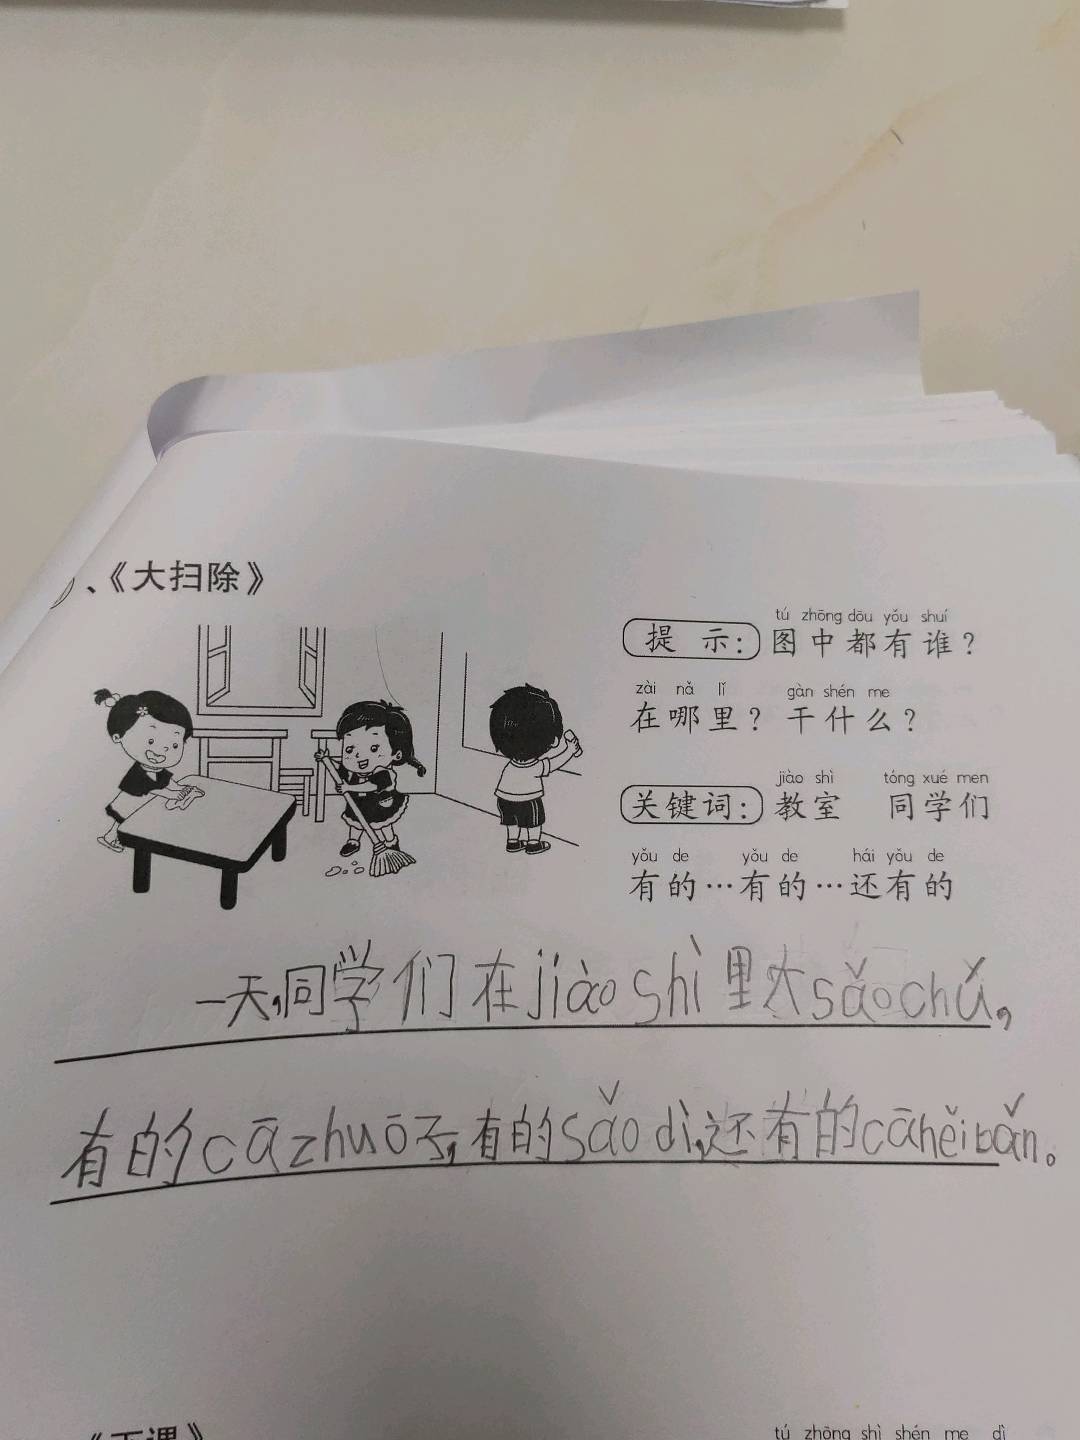 、《大扫除》
tú zhōng dōu yǒu shuí
提 示： 图中都有谁？
zài nǎ lǐ gàn shén me
在哪里？干什么？
jiào shì tóng xué men
关键词： 教室 同学们
yǒu de yǒu de hái yǒu de
有的…有的…还有的
一天，同学们在jiào shì里大sǎo chú，
有的cā zhuō子，有的sǎo dì，还有的cā hěi bǎn。
《下课》
tú zhōng shì shén me dì